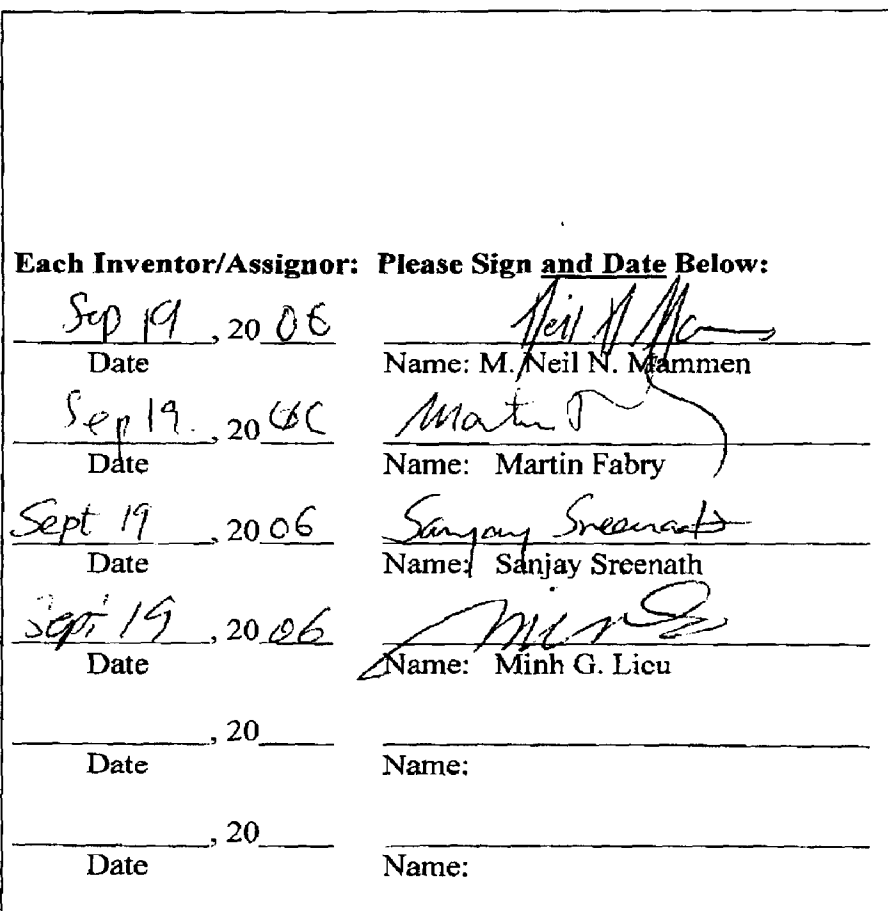 Each Inventor/Assignor: Please Sign and Date Below:
Sep 19, 20 06 Neil N Mam
Date Name: M. Neil N. Mammen
Sep 19. , 20 06 Martin F
Date Name: Martin Fabry
Sept 19, 20 06 Sanjay Sreenath
Date Name: Sanjay Sreenath
Sept 19, 20 06
Date Name: Minh G. Licu
, 20
Date Name:
, 20
Date Name: